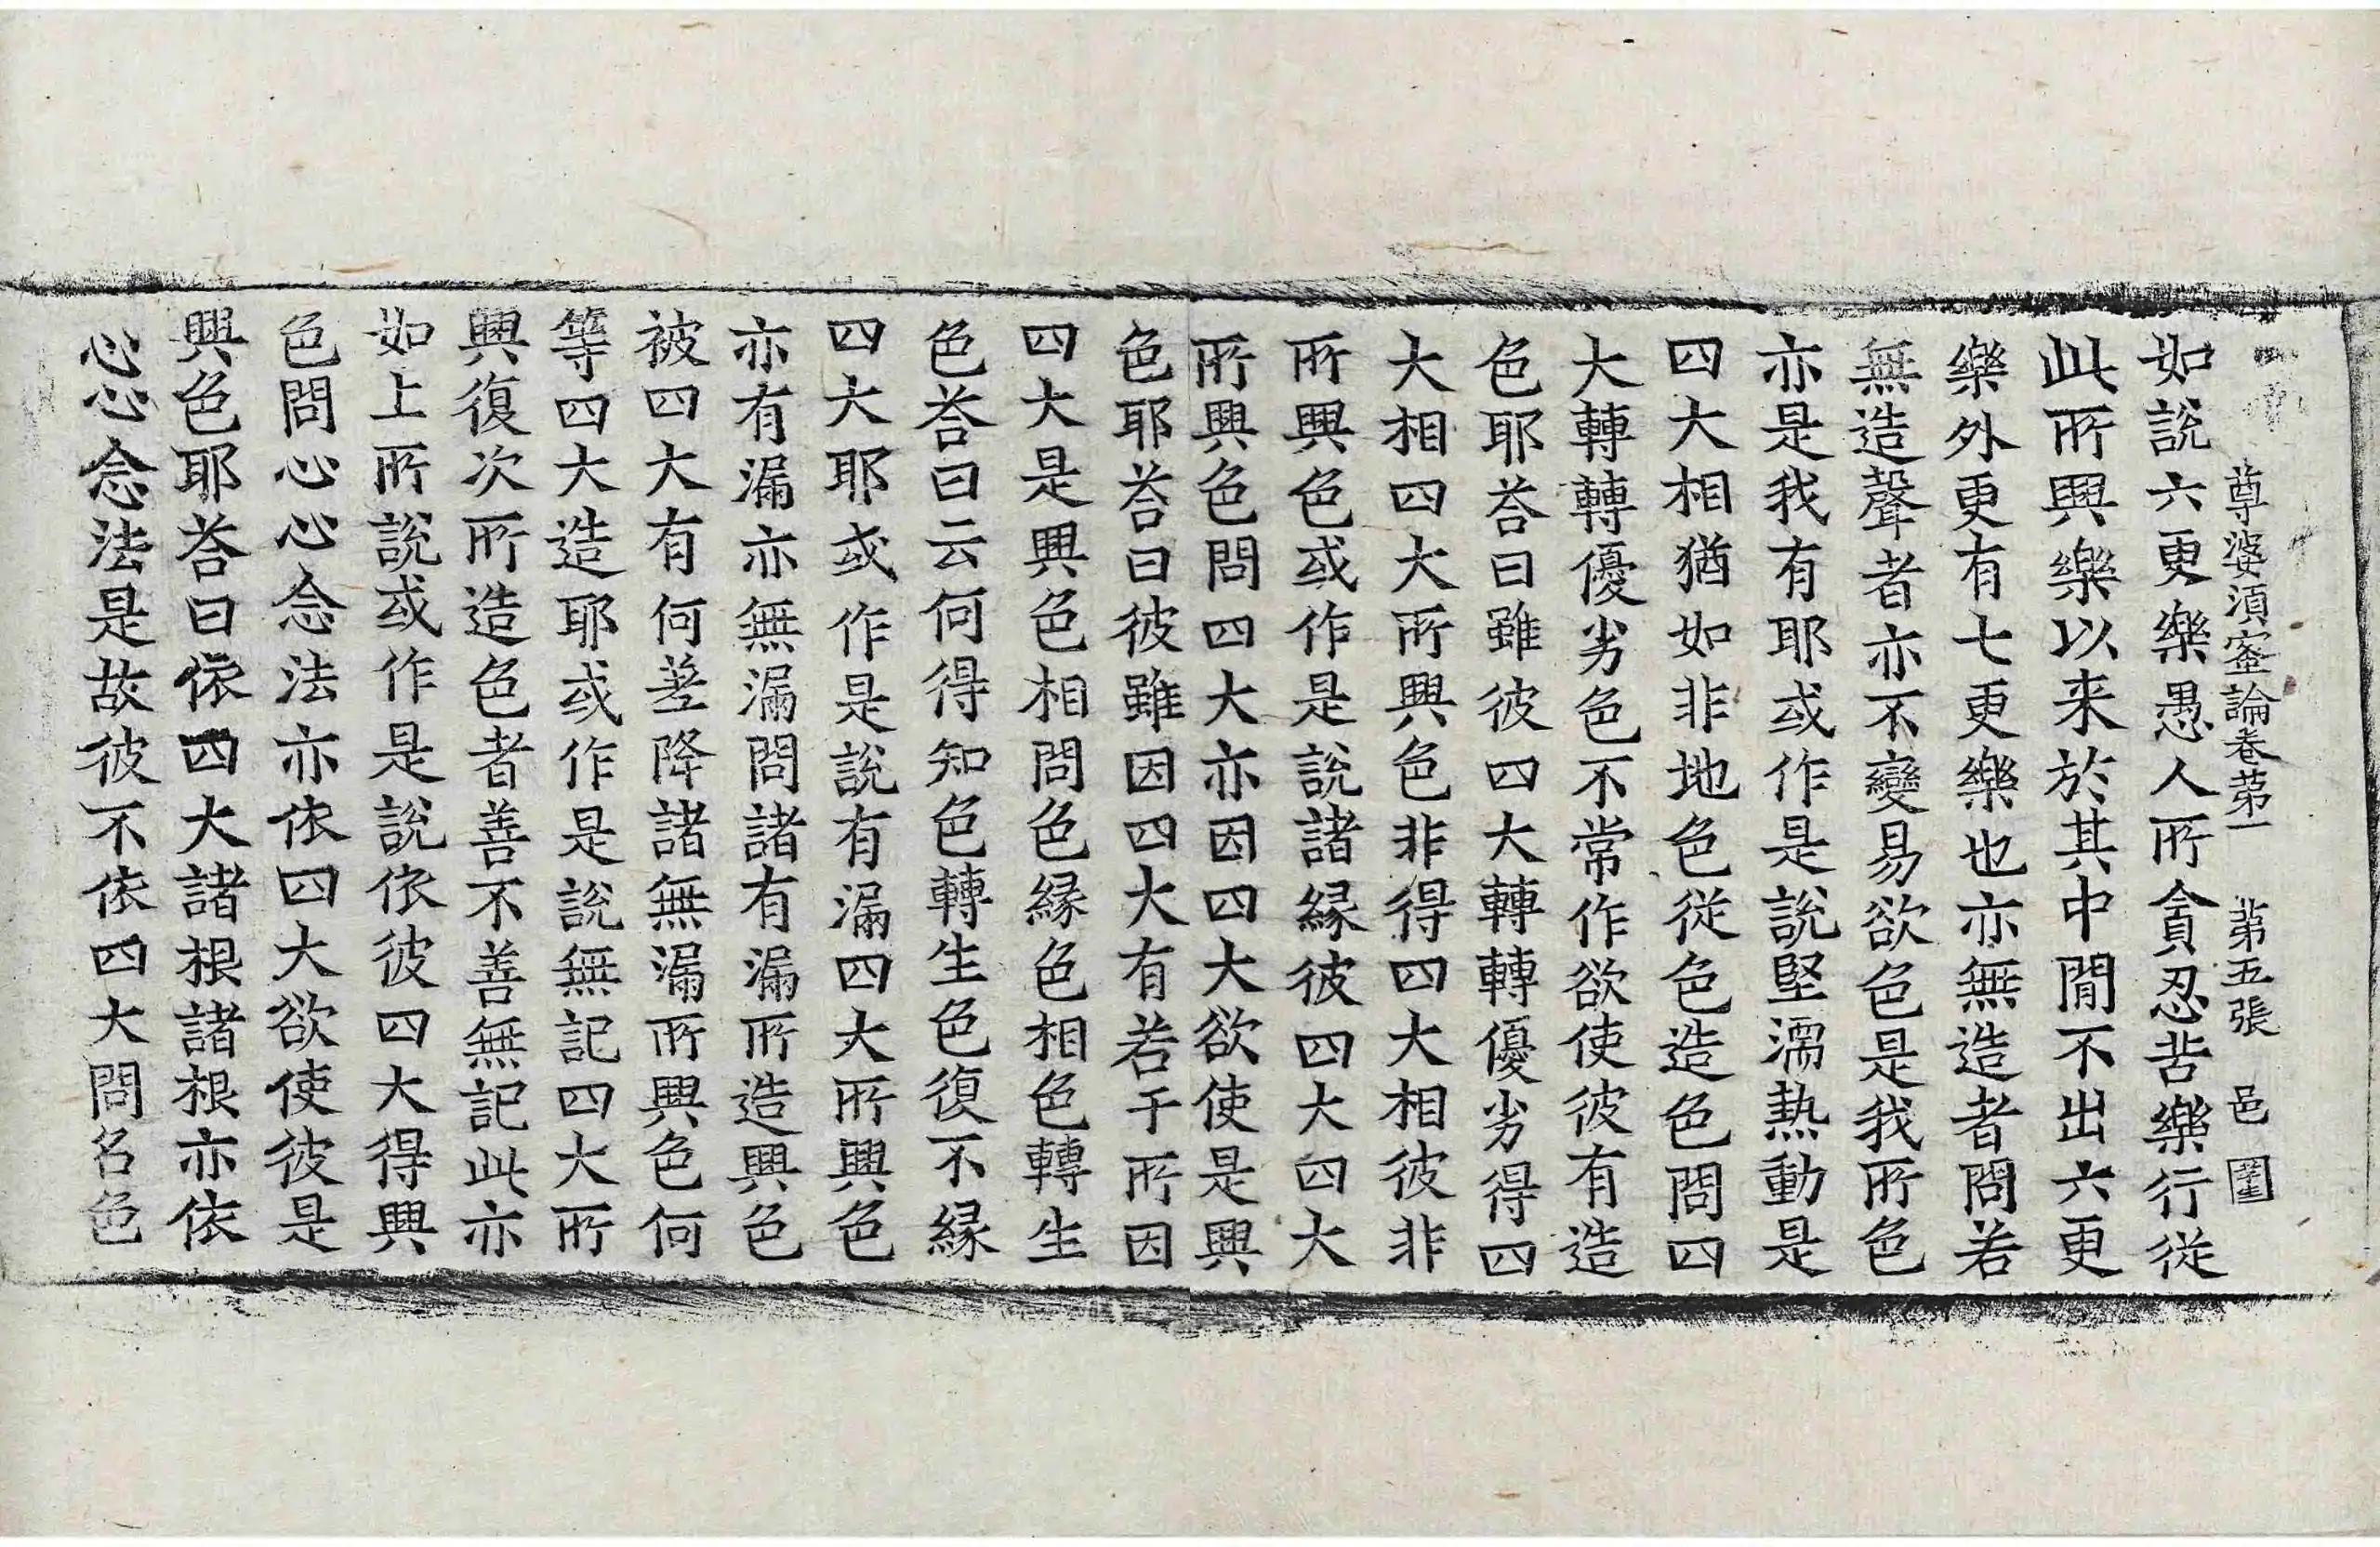 尊婆湏蜜論卷苐一 苐五張 邑
如說六更樂愚人所貪忍苦樂行從
此所興樂以来於其中閒不出六更
樂外更有七更樂也亦無造者問若
無造聲者亦不變易欲色是我所色
亦是我有耶或作是說堅濡熱動是
四大相猶如非地色從色造色問四
大轉轉優劣色不常作欲使彼有造
色耶荅曰雖彼四大轉轉優劣得四
大相四大所興色非得四大相彼非
所興色或作是說諸緣彼四大四大
所興色問四大亦因四大欲使是興
色耶荅曰彼雖因四大有若干所因
四大是興色相問色緣色相色轉生
色荅曰云何得知色轉生色復不緣
四大耶或作是說有漏四大所興色
亦有漏亦無漏問諸有漏所造興色
被四大有何差降諸無漏所興色何
等四大造耶或作是說無記四大所
興復次所造色者善不善無記此亦
如上所說或作是說依彼四大得興
色問心心念法亦依四大欲使彼是
興色耶荅曰依四大諸根諸根亦依
心心念法是故彼不依四大問名色